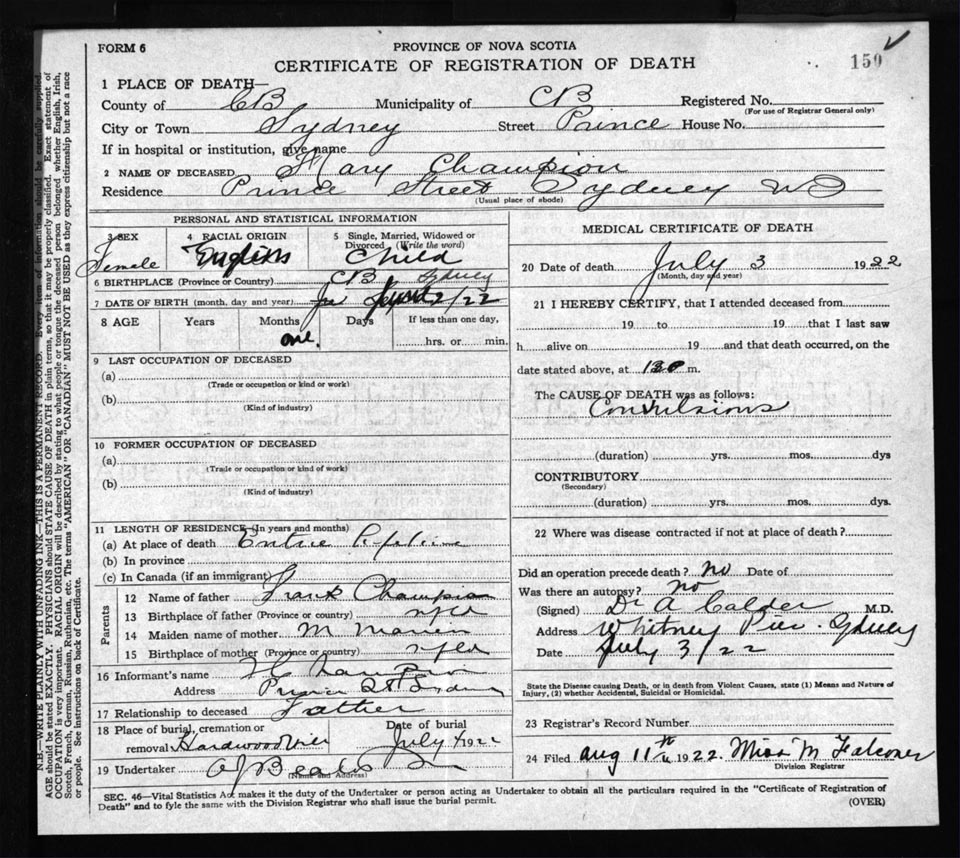 FORM 6
PROVINCE OF NOVA SCOTIA
CERTIFICATE OF REGISTRATION OF DEATH
150
1 PLACE OF DEATH—
County of CB Municipality of CB Registered No.
(For use of Registrar General only)
City or Town Sydney Street Prince House No.
If in hospital or institution, give name
2 NAME OF DECEASED Mary Champion
Residence Prince Street Sydney NS
(Usual place of abode)
PERSONAL AND STATISTICAL INFORMATION
3 SEX 4 RACIAL ORIGIN 5 Single, Married, Widowed or Divorced (Write the word)
Female English Child
6 BIRTHPLACE (Province or Country) CB Sydney
7 DATE OF BIRTH (month, day and year) 2/22
8 AGE Years Months Days If less than one day,
one. hrs. or min.
9 LAST OCCUPATION OF DECEASED
(a)
(Trade or occupation or kind or work)
(b)
(Kind of industry)
10 FORMER OCCUPATION OF DECEASED
(a)
(Trade or occupation or kind of work)
(b)
(Kind of industry)
11 LENGTH OF RESIDENCE (In years and months)
(a) At place of death Entire lifetime
(b) In province
(c) In Canada (if an immigrant)
Parents
12 Name of father Frank Champion
13 Birthplace of father (Province or country) nfld
14 Maiden name of mother M
15 Birthplace of mother (Province or country) nfld
16 Informant's name F Champion
Address Prince St Sydney
17 Relationship to deceased Father
18 Place of burial, cremation or Date of burial
removal Hardwood Hill July 4 1922
19 Undertaker A J Beaton
(Name and Address)
MEDICAL CERTIFICATE OF DEATH
20 Date of death July 3 1922
(Month, day and year)
21 I HEREBY CERTIFY, that I attended deceased from
19 to 19 that I last saw
h alive on 19 and that death occurred, on the
date stated above, at 130 m.
The CAUSE OF DEATH was as follows:
Convulsions
(duration) yrs. mos. dys
CONTRIBUTORY
(Secondary)
(duration) yrs. mos. dys.
22 Where was disease contracted if not at place of death?
Did an operation precede death? No Date of
Was there an autopsy? No
(Signed) Dr A Calder M.D.
Address Whitney Pier Sydney
Date July 3/22
State the Disease causing Death, or in death from Violent Causes, state (1) Means and Nature of
Injury, (2) whether Accidental, Suicidal or Homicidal.
23 Registrar's Record Number
24 Filed Aug 11th 1922. Miss M Falconer
Division Registrar
SEC. 46—Vital Statistics Act makes it the duty of the Undertaker or person acting as Undertaker to obtain all the particulars required in the "Certificate of Registration of
Death" and to fyle the same with the Division Registrar who shall issue the burial permit.
(OVER)
N.B.—WRITE PLAINLY WITH UNFADING INK—THIS IS A PERMANENT RECORD. Every item of information should be carefully supplied.
AGE should be stated EXACTLY. PHYSICIANS should STATE CAUSE OF DEATH in plain terms, so that it may be properly classified. Exact statement of
OCCUPATION is very important. RACIAL ORIGIN will be described by stating to what people or tongue the deceased person belonged whether English, Irish,
Scotch, French, German, Russian, Ruthenian, etc. The terms "AMERICAN" OR "CANADIAN" MUST NOT BE USED as they express citizenship but not a race
or people. See instructions on back of Certificate.